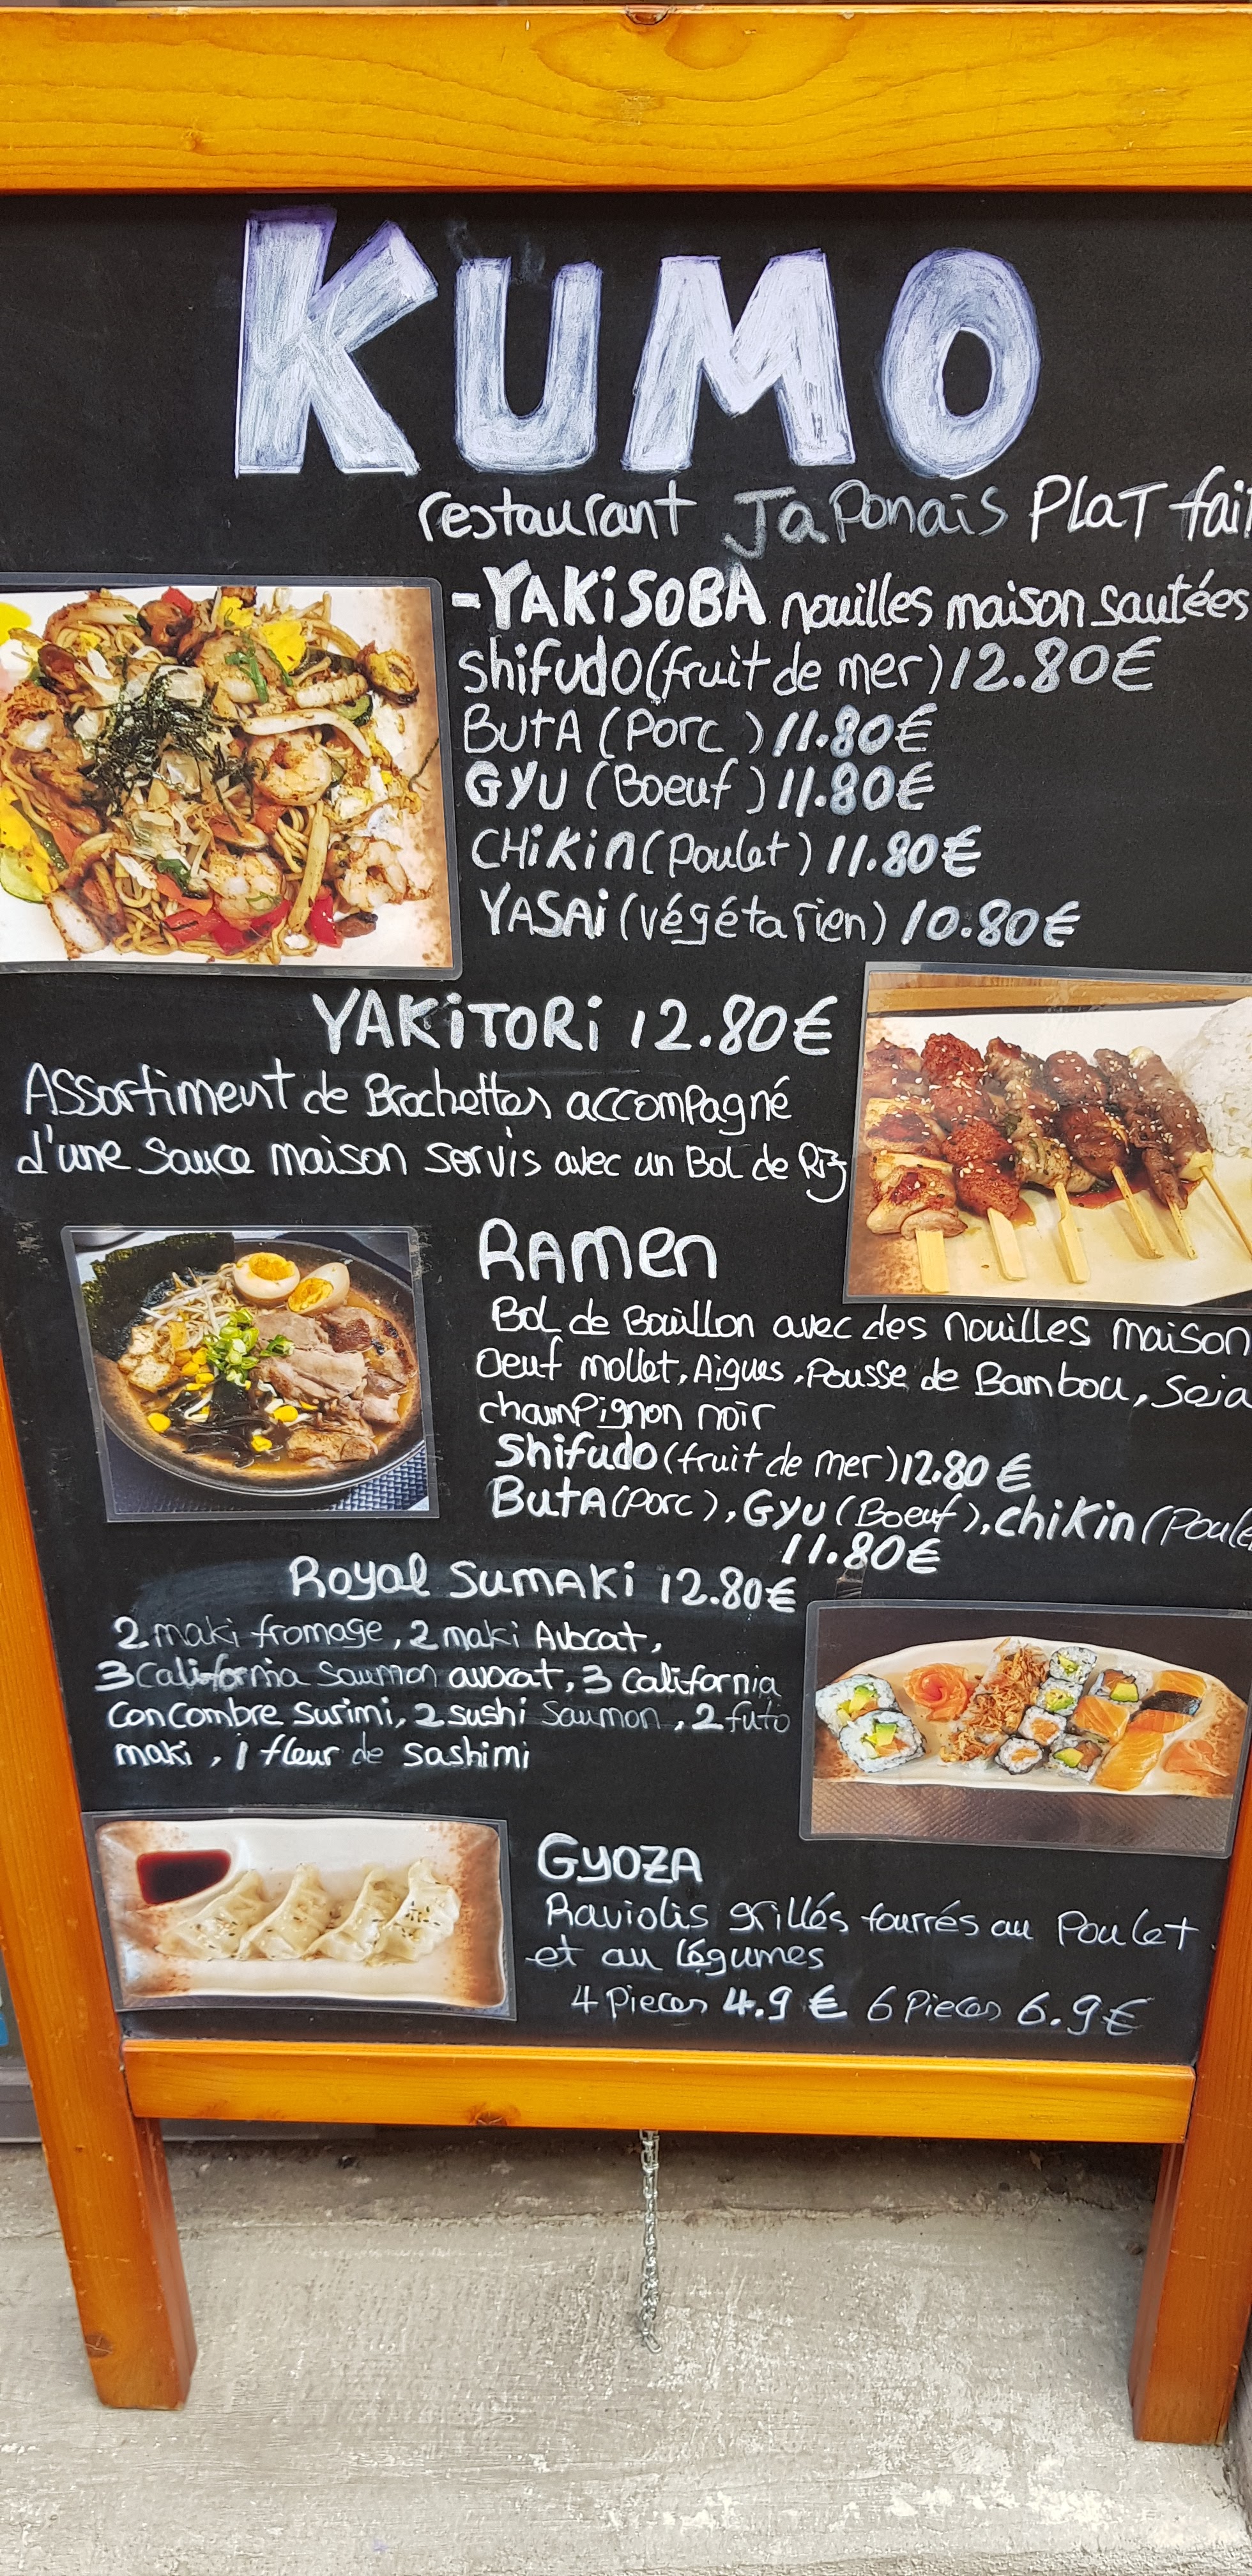 KUMO
restaurant JaPonais PLaT fai
-YAKiSOBA nouilles maison sautées
shifudo(fruit de mer)12.80€
ButA (Porc )11.80€
GYU (Boeuf )11.80€
CHiKin(Poulet) 11.80€
YASAi(végétarien) 10.80€
YAKiTORi 12.80€
Assortiment de Brochettes accomPagné
d'une Sauce maison servis avec un Bol de Riz
RAmen
Bol de Bouillon avec des nouilles maison
Oeuf mollet, Aigues, Pousse de Bambou, Soja
chamPignon noir
Shifudo(fruit de mer)12.80 €
ButA(Porc), GYU(Boeuf), chiKin(Poule
11.80€
Royal SUMAKi 12.80€
2 maki fromage, 2 maki Avocat,
3 California Saumon avocat, 3 California
Concombre Surimi, 2 sushi Saumon, 2 futo
maki, 1 fleur de Sashimi
GYOZA
Raviolis grillés fourrés au Poulet
et au légumes
4 Pieces 4.9 € 6 Pieces 6.9€